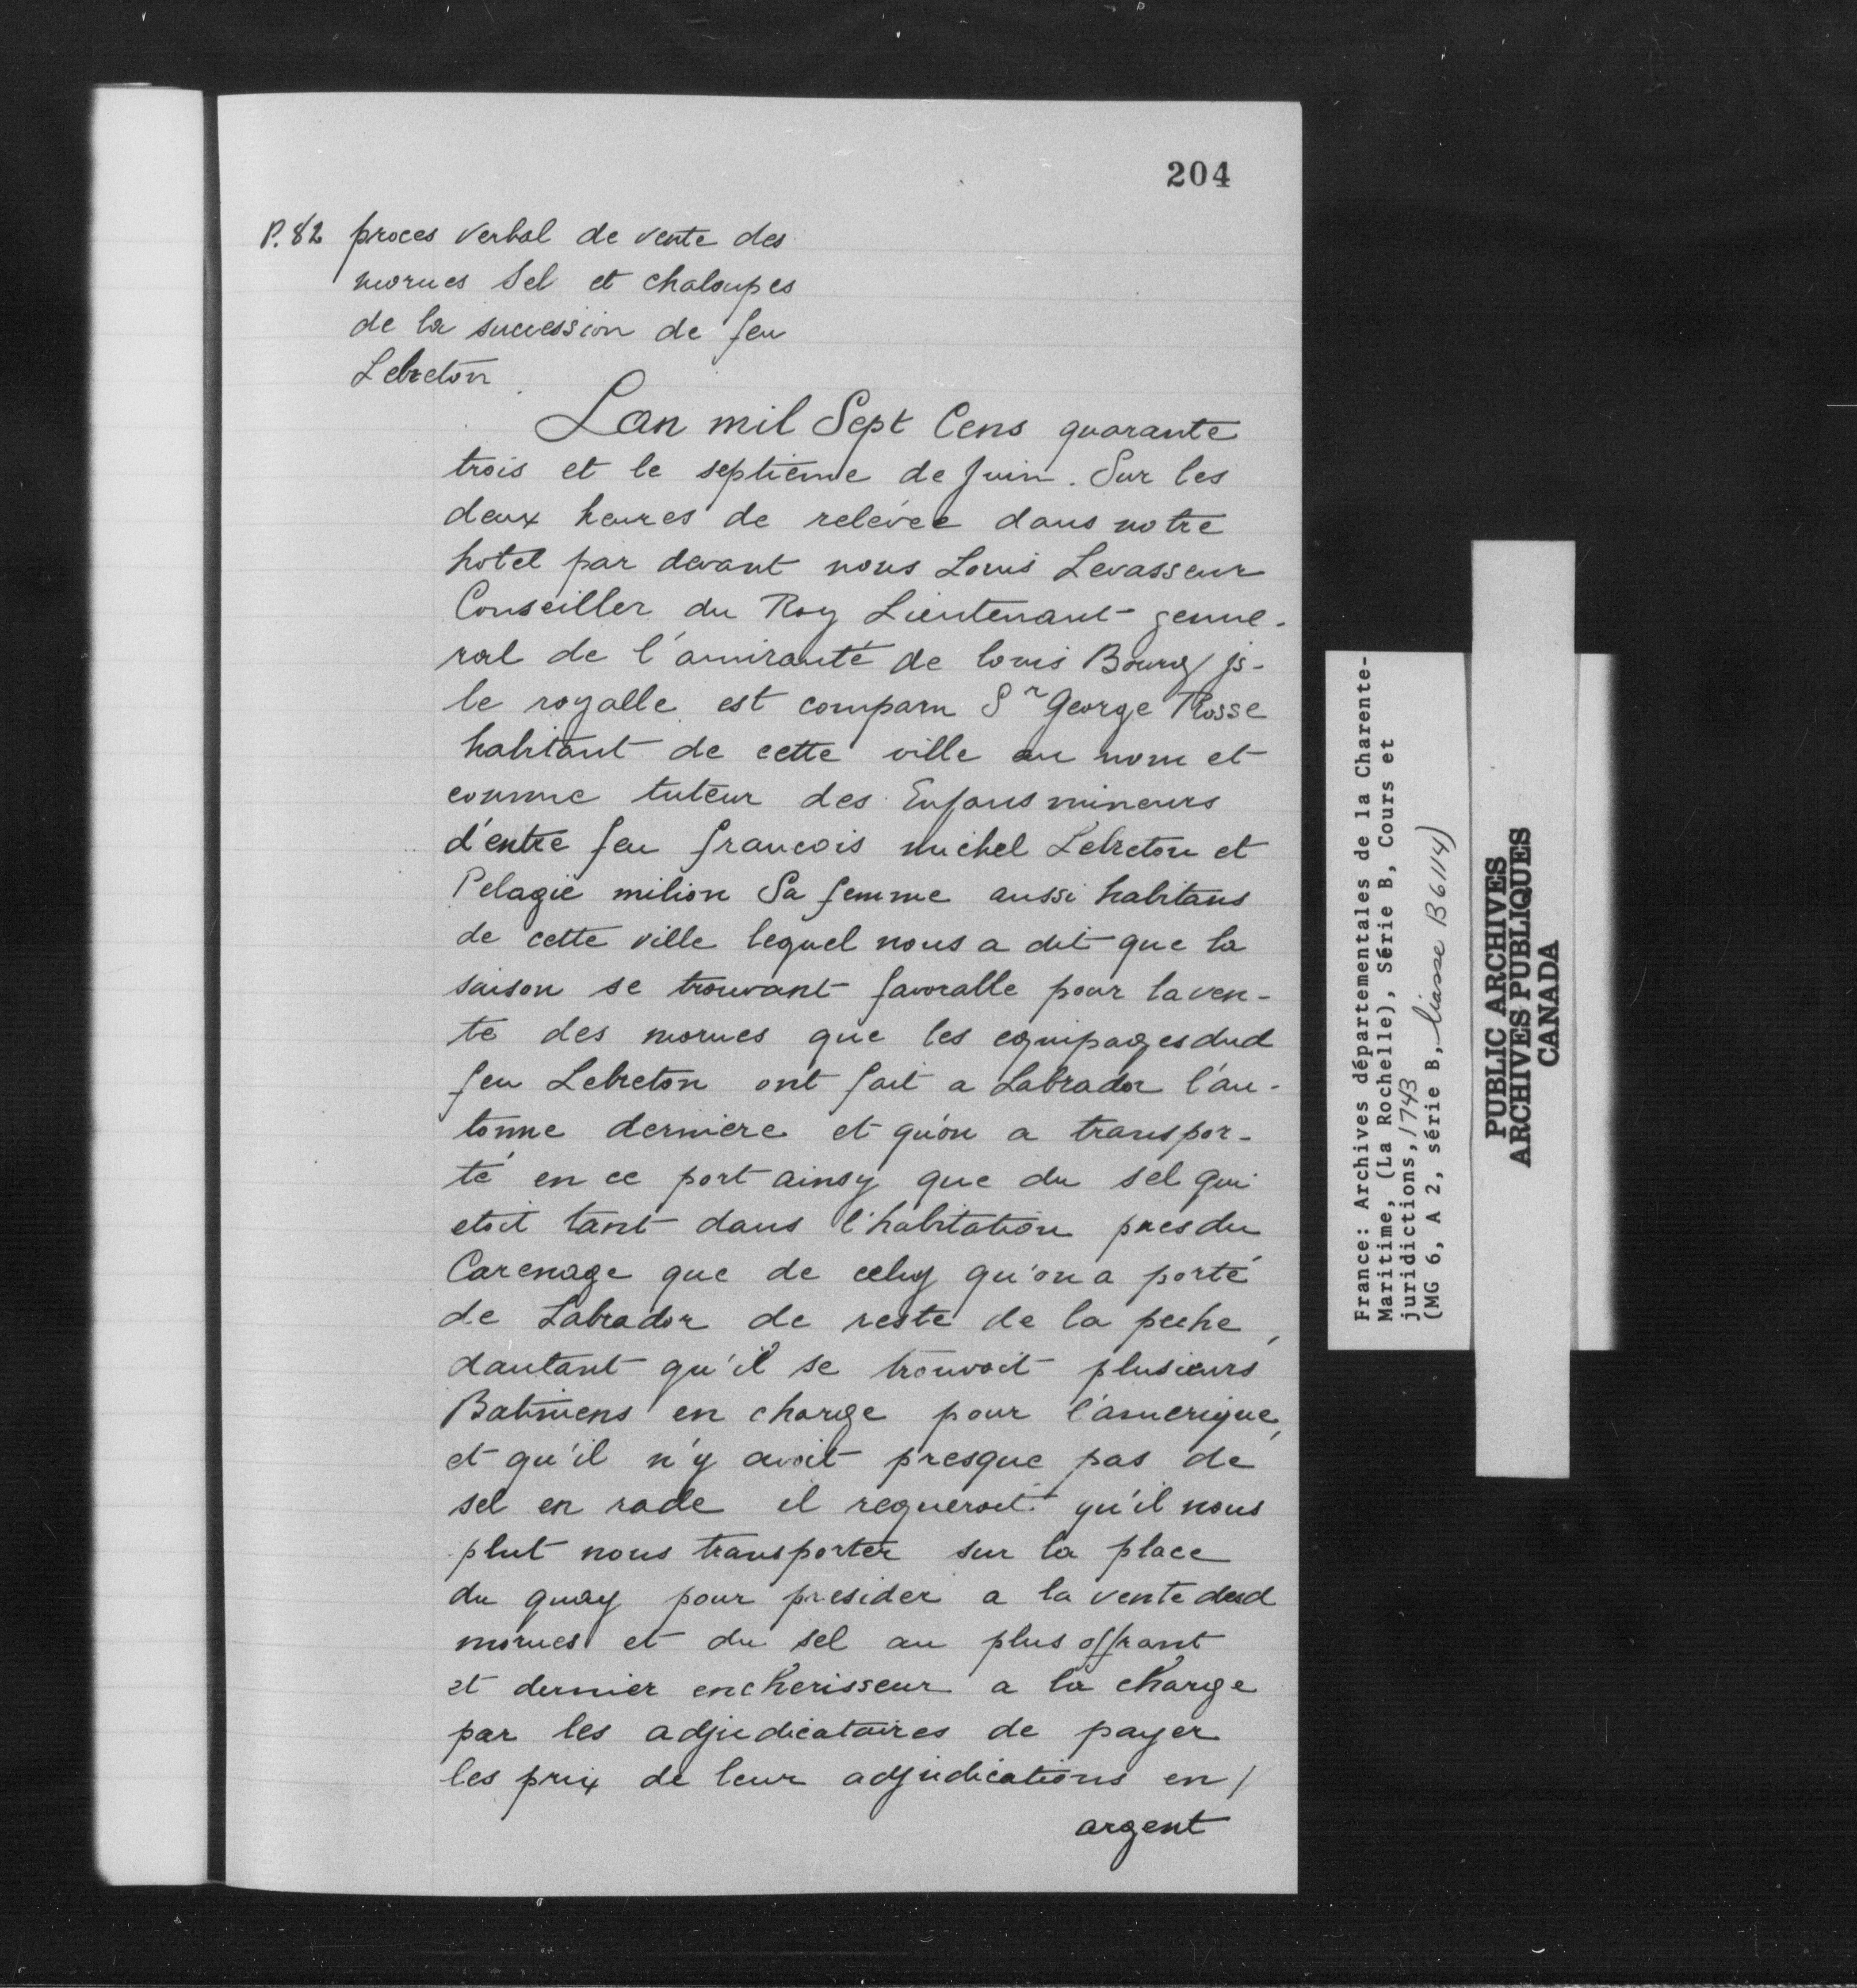 204
P. 82 proces verbal de vente des
morues Sel et chaloupes
de la succession de feu
Lebreton
Lan mil Sept Cens quarante
trois et le septiéme de Juin. Sur les
deux heures de relévee dans notre
hotel par devant nous Louis Levasseur
Conseiller du Roy Lieutenant genne-
ral de l'amirauté de louis Bourg js-
le royalle est comparu Sr George Rosse
habitant de cette ville au nom et
comme tuteur des Enfans mineurs
d'entre feu francois michel Lebreton et
Pelagie milion Sa femme aussi habitans
de cette ville lequel nous a dit que la
saison se trouvant favoralle pour la ven-
te des morues que les equipages dud
feu Lebreton ont fait a Labrador l'au-
tonne derniere et qu'on a transpor-
té en ce port ainsy que du sel qui
etoit tant dans l'habitation pres du
Carenage que de celuy qu'on a porté
de Labrador de reste de la peche,
dautant qu'il se trouvoit plusieurs
Batimens en charge pour l'amerique,
et qu'il n'y avoit presque pas de
sel en rade il requeroit qu'il nous
plut nous transporter sur la place
du quay pour presider a la vente desd
morues et du sel au plus offrant
et dernier encherisseur a la charge
par les adjudicataires de payer
les prix de leur adjudications en /
argent
France: Archives départementales de la Charente-
Maritime, (La Rochelle), Série B, Cours et
juridictions, 1743
(MG 6, A 2, série B, liasse B6114)
PUBLIC ARCHIVES
ARCHIVES PUBLIQUES
CANADA